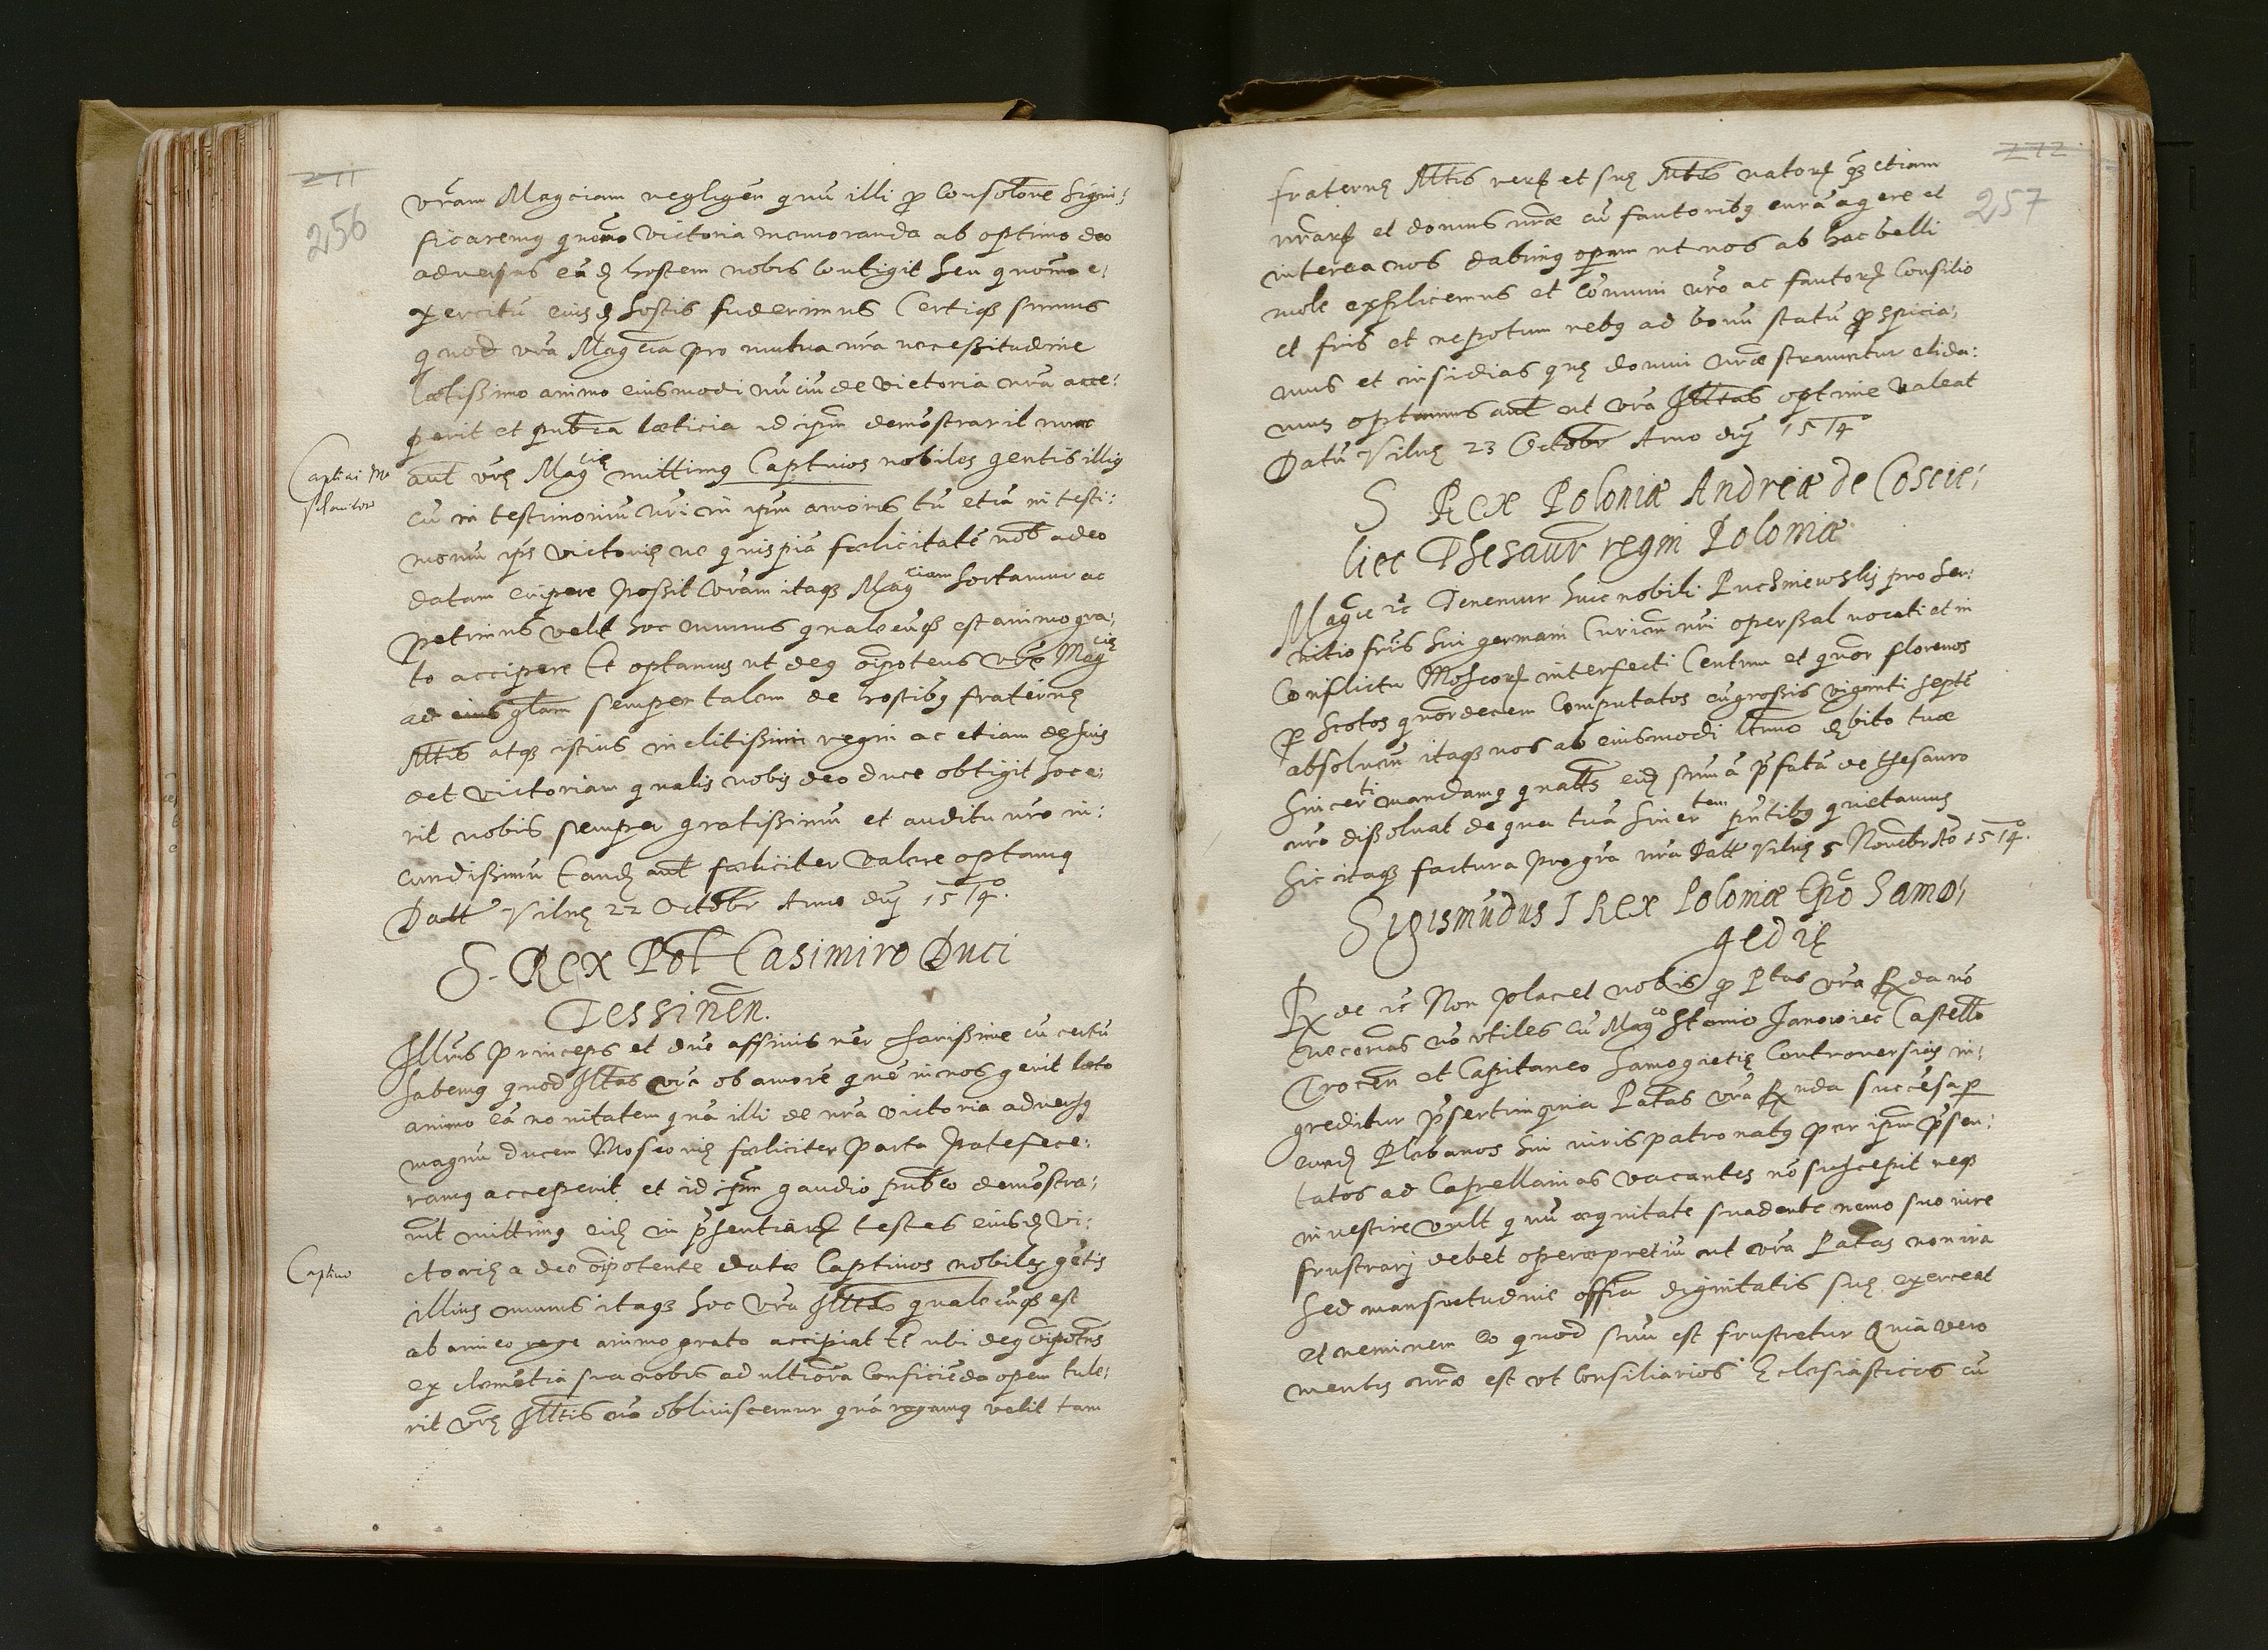 211
256
vr̃am Magciam negligẽn quũ illi ꝑ consolone signi:
ficaremꝰ quomo victoria memoranda ab optimo deo
adversus eũdẽ hostem nobis contigit seu quomo e:
xercitũ eiusdẽ hostis fuderimus Certiqꝫ sumus
quod vr̃a Magcia pro mutua nr̃a necessitudine
lætissimo animo eiusmodi nũciũ de victoria nr̃a acce:
perit et publica læticia id ipm̃ demõstrarit nunc
Captivi Mo
aut vrę Magcię mittimꝰ Captivos nobiles gentis illiꝰ
cũ in testimoniũ nri in ipm̃ amoris tũ etiã in testi:
moniũ ips̃ victorię ne quispiã fœlicitatẽ nob̃ a deo
datam eripere possit Vram itaqꝫ Magciam hortamur ac
petimus velit hoc munus qualecũqꝫ est animo gra:
to accipere Et optamus ut deꝰ oĩpotens vrę Magcię
ad eius glam semper talem de hostibꝰ fraternę
Mtis atqꝫ istius inclitissimi regni ac etiam de suis
det victoriam qualis nobis deo duce obtigit hoc e:
rit nobis semper gratissimũ et auditu nro iu:
cundissimũ Eandẽ aut fœliciter valere optamꝰ
Datt Vilnę 22 Octobr Anno dnj 1514°.
S. Rex Pol Casimiro Duci
Tessinen̄.
Illrus princeps et dne affinis nr̃ charissime cũ certũ
habemꝰ quod Illtas vr̃a ob amorẽ quẽ in nos gerit læto
animo eã novitatem quã illi de nr̃a victoria adversꝰ
magnũ ducem Moscovię fœliciter parta patefece:
ramꝰ acceperit et id ipm̃ gaudio publico demõstra:
rit mittimꝰ eidẽ in p̃sentiarũ testes eiusdẽ vi:
Captivo
ctorię a deo oĩpotente datæ Captivos nobiles gẽtis
illius munus itaqꝫ hoc vr̃a Illtas qualecũqꝫ est
ab amico rege animo grato accipiat Et ubi deꝰ oĩpotns
ex clemẽtia sua nobis ad ultiora conficiẽda opem tule:
rit vrę Illtis nõ obliviscemur quã rogamꝰ velit tam
272
257
fraternę Mtis rerũ et suę Mtis natorũ qꝫ etiam
nrarũ et domus nræ cũ fautoribꝰ curã agere et
interea nos dabimꝰ operam ut nos ab hac belli
mole explicemus et cõmuni vro ac fautorũ consilio
et fris et nepotum rebꝰ ad bonũ statũ ꝓspicia:
mus et insidias quę domui nræ struuntur elida:
mus optamus aut ut vra Illtas optime valeat
Datũ Vilnę 23 Octobr Anno dnj 1514°
S Rex Poloniæ Andreæ de Coscie:
liec Thesaur regni Poloniæ
Magce ꝛc Tenemur huic nobili Puchniewskij pro ser:
vitio fris sui germani Curien̄ nri operssal vocati et in
Conflictu Moscorũ interfecti Centum et quor florenos
ꝑ scotos quordecem Computatos cũ grossis viginti septẽ
absolvat̃ itaqꝫ nos ab eiusmodi debito tuæ
sincerti mandamꝰ quatts eidẽ sumã p̃fatã de thesauro
nro dissolvat de qua tuã sincertem pñtibꝰ quietamus
sic itaqꝫ factura pro gra nra Datt Vilnę 5 Novembr Ao 1514°.
Sigismũdus I Rex Poloniæ Epo Samo:
gedię
Rx de ꝛc Non placet nobis ꝙ Ptas vra Rx da nõ
necorias nõ utiles cũ Magco Stanio Janowiec Castello
Trocen̄ et Capitaneo Samogietię controversias in:
greditur p̃sertim quia Patas vra Rx nda succesa ꝑ
eundẽ Plebanos sui iuris patronatꝰ per ipm̃ p̃sen:
tatos ad Capellanias vacantes nõ suscepit neqꝫ
investire vult quũ æquitate suadente nemo suo iure
frustrarj debet operæpretiũ ut vra Patas non ira
sed mansuetudine offia dignitatis suę exerceat
et neminem eo quod suũ est frustretur Quia vero
mentis nræ est ut consiliarios Ecclesiasticos cũ